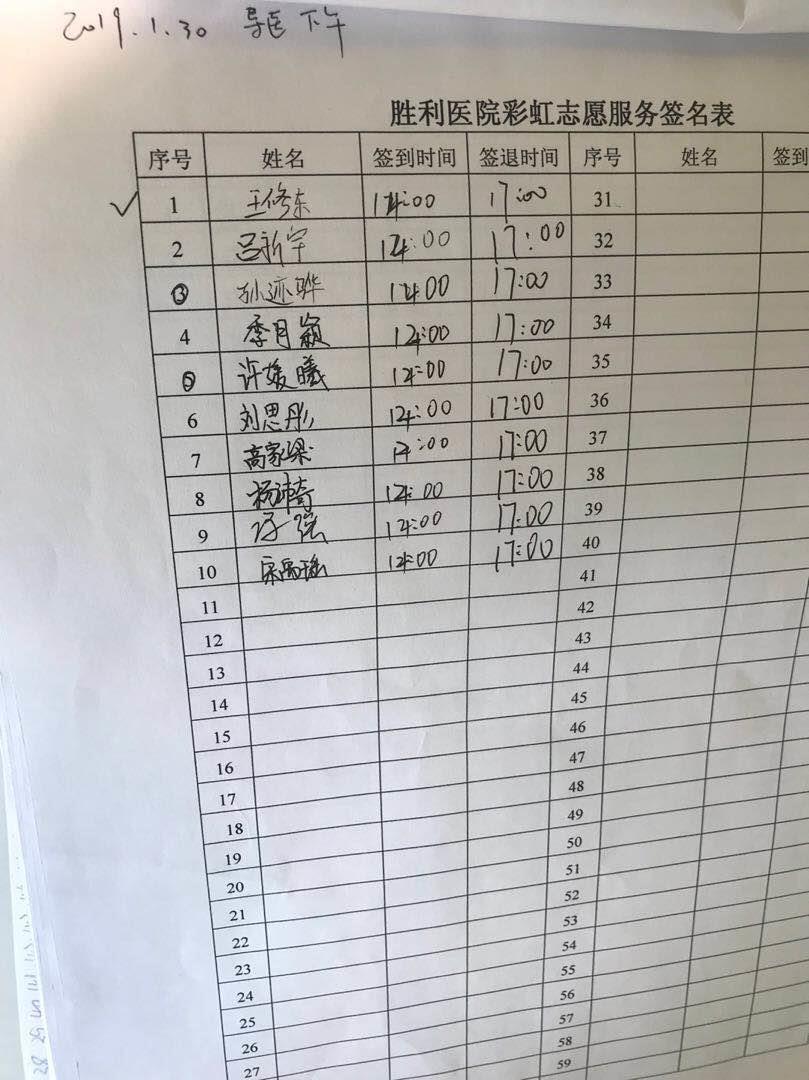 2019.1.30 导医 下午
胜利医院彩虹志愿服务签名表
序号 姓名 签到时间 签退时间 序号 姓名 签到
1 王修东 14:00 17:00 31
2 吕新宇 14:00 17:00 32
3 孙迹骅 14:00 17:00 33
4 季月颖 14:00 17:00 34
5 许媛曦 14:00 17:00 35
6 刘思彤 14:00 17:00 36
7 高家梁 14:00 17:00 37
8 14:00 17:00 38
9 14:00 17:00 39
10 14:00 17:00 40
11 41
12 42
13 43
14 44
15 45
16 46
17 47
18 48
19 49
20 50
21 51
22 52
23 53
24 54
25 55
26 56
27 57
58
59